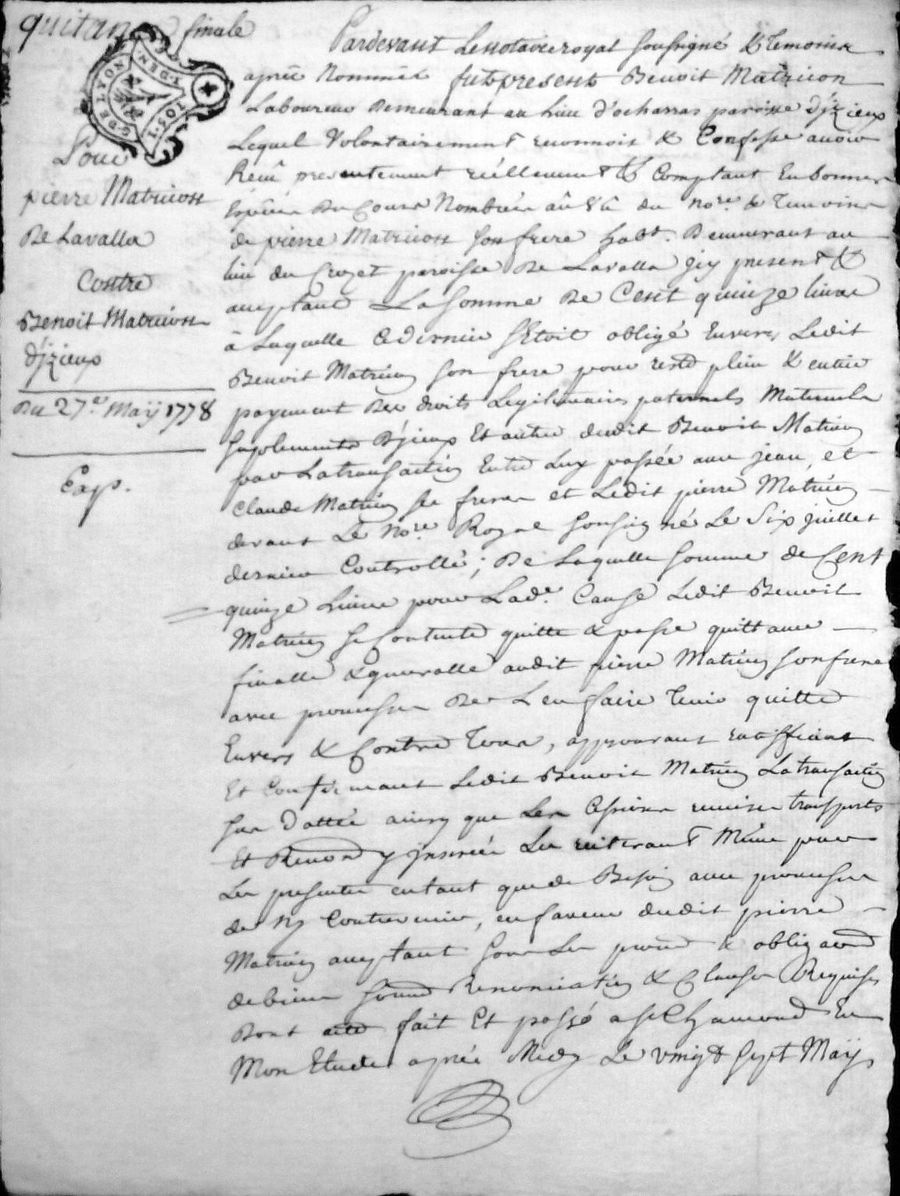 quitance finale
G. DE LYON
1. DEN.
Pour
pierre Matricon
De Lavalla
Contre
Benoit Matricon
d'jzieux
Du 27.e Maÿ 1778
Exp.
Pardevant Le notaire royal soussigné & temoins
après Nommés fut present Benoit Matricon
Laboureur Demeurant au lieu d'ocharras paroisse d'jzieux
Lequel Volontairement reconnois & Confesse avoir
Receu presentement réellement & Comptant En bonnes
Espéces Du Cours Nombrées au vû du no.re & Temoins
de pierre Matricon son frere hab.t Demeurant au
lieu du Crozet paroisse De Lavalla jcy present &
acceptant La somme De Cent quinze livres
à Laquelle Ce dernier s'Etoit obligé Envers Ledit
Benoit Matricon son frere pour reste plein & entier
payement Des droits Legitimaires paternels Maternels
suplements D'jceux Et autres dudit Benoit Matricon
par La transaction Entre Luy passée avec jean, et
Claude Matricon ses freres et Ledit pierre Matricon
devant Le No.re Royal soussigné Le Six juillet
dernier Controllé; De Laquelle somme de Cent
quinze Livres pour Lad.e Cause Ledit Benoit
Matricon se Contente quitte & passe quittance
finalle & generalle audit pierre Matricon son frere
avec promesse De L'en faire tenir quitte
Envers & Contre Tous, approuvant ratiffiant
Et Confirmant Ledit Benoit Matricon La transaction
sus dattée ainsy que Les Cessions remises transports
Et Renond y jnserées Les réiterant Même par
Les presentes entant que de Besoin avec promesse
de N'y Contrevenir, en faveur dudit pierre
Matricon acceptant sous Les peines & obligaõns
de biens soumd Renonciation & Clauses Requises
Dont acte fait Et passé a st Chamond En
Mon Etude après Midy Le vingt Sept Maÿ